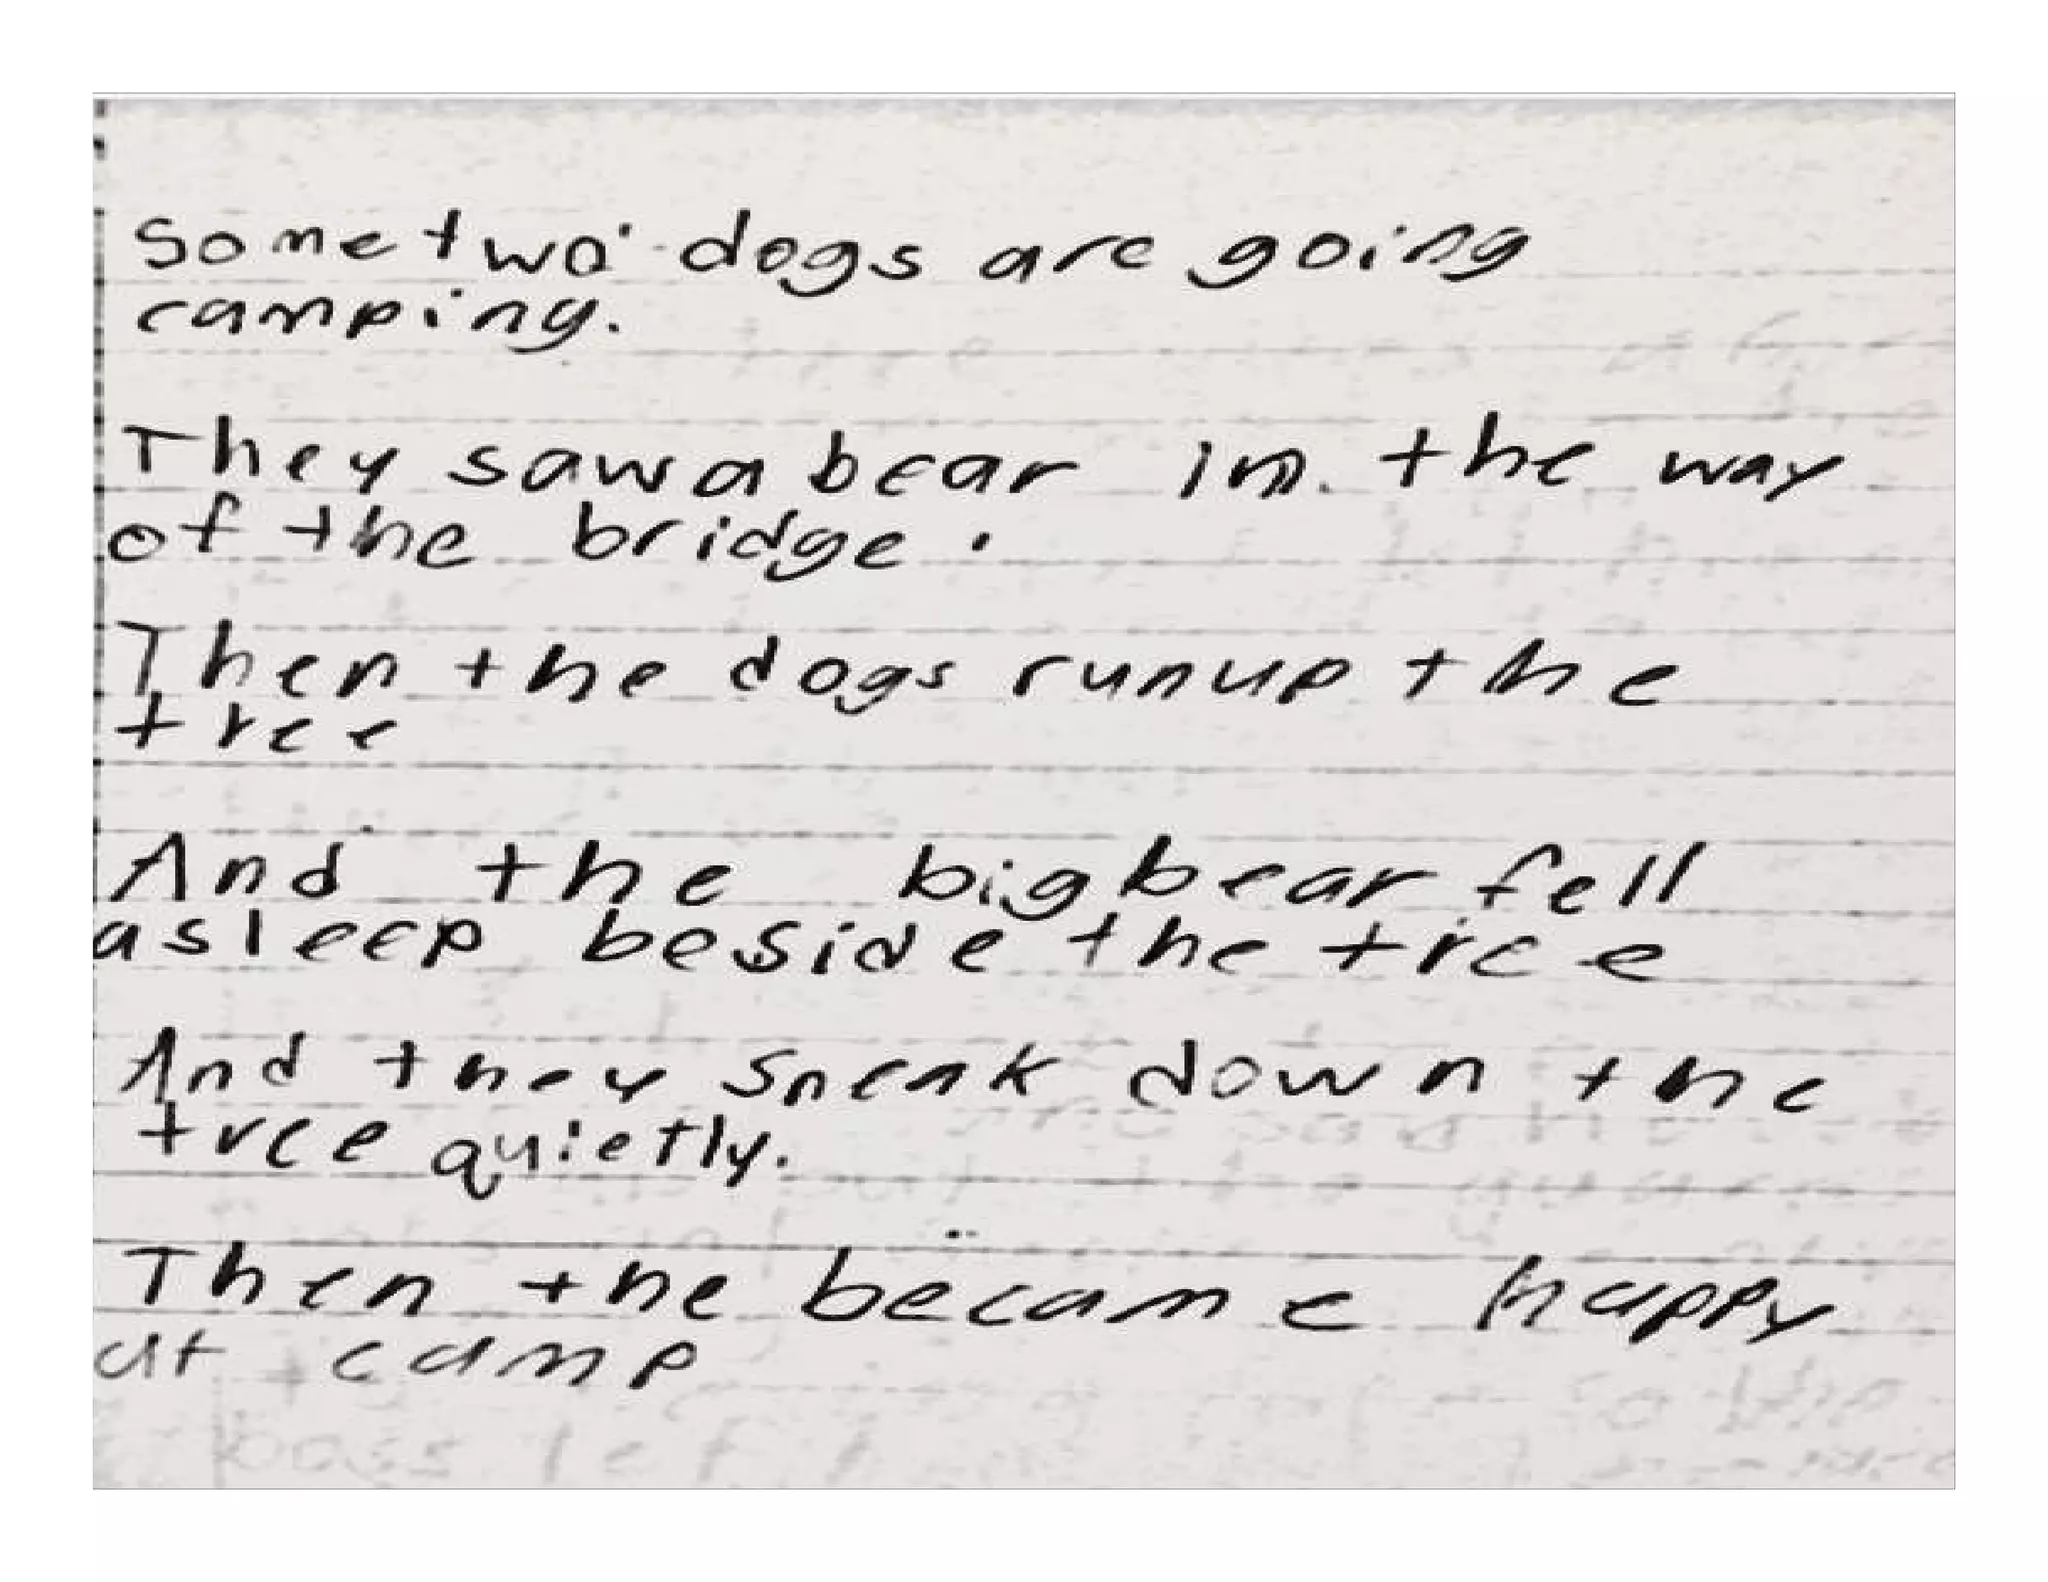 Some two dogs are going
camping.
They saw a bear in the way
of the bridge.
Then the dogs run up the
tree
And the big bear fell
asleep beside the tree
And they sneak down the
tree quietly.
Then the became happy
at camp